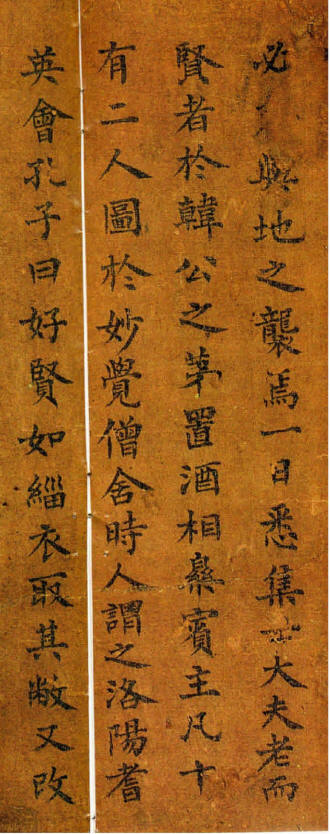 必與地之襲焉一日悉集士大夫老而
賢者於韓公之第置酒相樂賓主凡十
有二人圖於妙覺僧舍時人謂之洛陽耆
英會孔子曰好賢如緇衣取其敝又改